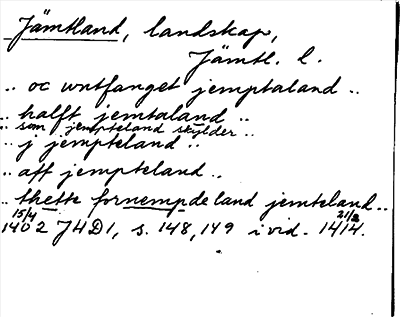 Jämtland, landskap,
Jämtl. l.
.. oc untfanget jemptaland ..
.. halft jemtaland ..
.. som jempteland skylder ..
.. j jempteland ..
.. aff jempteland ..
.. thette fornempde land jemteland ..
15/4 21/2
1402 JHD1, s. 148, 149 i vid. 1414.